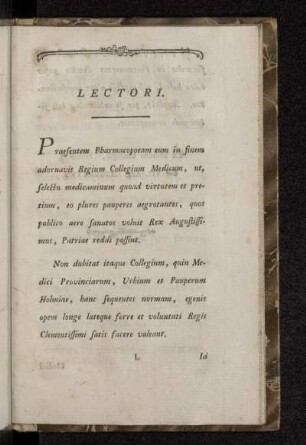 LECTORI.
Praesentem Pharmacopoeam eum in finem
adornavit Regium Collegium Medicum, ut,
selectu medicaminum quoad virtutem et pre-
tium, eo plures pauperes aegrotantes, quot
publico aere sanatos voluit Rex Augustissi-
mus, Patriae reddi possint.
Non dubitat itaque Collegium, quin Me-
dici Provinciarum, Urbium et Pauperum
Holmiae, hanc sequentes normam, egenis
opem longe lateque ferre et voluntati Regis
Clementissimi satis facere valeant.
L Id